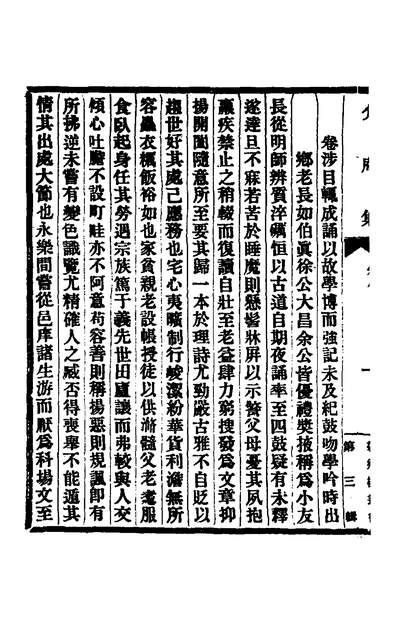 卷涉目輒成誦以故學博而強記未及紀鼓吻學吟時出
鄉老長如伯眞徐公大昌余公皆優禮奬掖稱爲小友
長從明師辨質淬礪恒以古道自期夜誦率至四鼓疑有未釋
遂達旦不寐若苦於睡魔則懸髻牀屛以示警父母憂其夙抱
羸疾禁止之稍輟而復讀自壯至老益肆力窮搜發爲文章抑
揚開闔隨意所至要其歸一本於理詩尤勁嚴古雅不自貶以
趨世好其處己應務也宅心夷曠制行峻潔紛華貨利澹無所
容麤衣糲飯裕如也家貧親老設帳授徒以供滫髓父老耄服
食臥起身任其勞遇宗族篤于義先世田廬讓而弗較與人交
傾心吐膽不設町畦亦不阿意苟容善則稱揚惡則規諷卽有
所拂逆未嘗有變色識覽尤精確人之臧否得喪舉不能遁其
情其出處大節也永樂間嘗從邑庠諸生游而厭爲科場文至
集
一
第三輯